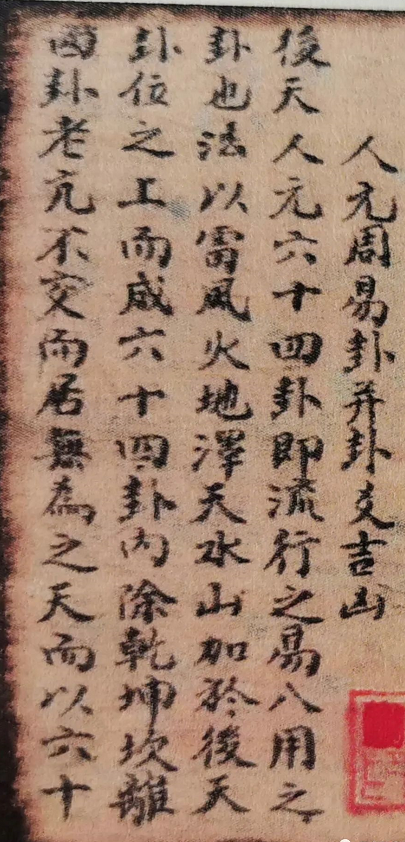 人元周易卦并卦爻吉凶
後天人元六十四卦即流行之易八用之
卦也法以雷風火地澤天水山加於後天
卦位之上而成六十四卦内除乾坤坎離
四卦老亢不交而居無為之天而以六十